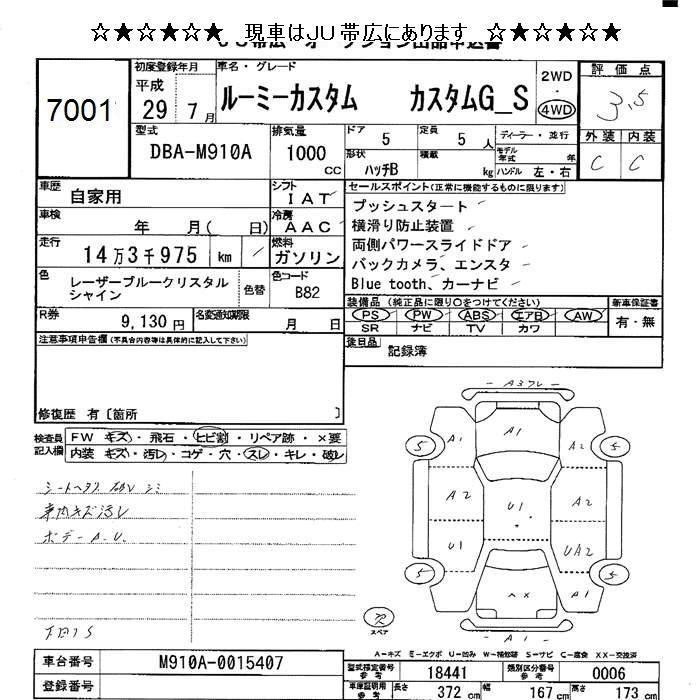 ☆★☆★☆★ 現車はJU帯広にあります ☆★☆★☆★
7001
初度登録年月
平成 29 年 7 月
車名・グレード
ルーミーカスタム カスタムG_S
2WD
・
4WD
評価点
3.5
型式
DBA-M910A
排気量
1000 CC
ドア 5
定員 5 人
ディーラー・並行
形状 ハッチB
積載 kg
モデル年式 年
ハンドル 左・右
外装 内装
C C
車歴 自家用
シフト IAT
車検 年 月( 日)
冷房 AAC
走行 14万3千975 km
燃料 ガソリン
色 レーザーブルークリスタルシャイン
色替
色コード B82
R券 9,130 円
名変通知期限 月 日
セールスポイント(正常に機能するものに限ります)
プッシュスタート
横滑り防止装置
両側パワースライドドア
バックカメラ、エンスタ
Blue tooth、カーナビ
装備品 (純正品に限り○をつけてください)
新車保証書
PS PW ABS エアB AW
SR ナビ TV カワ
有・無
注意事項申告欄(不具合内容等は具体的に記入して下さい)
後日品 記録簿
修復歴 有〔箇所 〕
検査員記入欄
FW キズ・飛石・ヒビ割・リペア跡・×要
内装 キズ・汚レ・コゲ・穴・スレ・キレ・破レ
車内キズ汚レ
ボデーA.U.
A3フレ
A1 A1 A1
5 5
A2 U1 A2
U1 UA2
5 5
A1
A1
スペア
A-キズ ミ-エクボ U-凹み W-補修跡 S-サビ C-腐食 XX-交換済
車台番号 M910A-0015407
登録番号
型式指定番号 参考 18441
類別区分番号 参考 0006
車庫証明用 参考 長さ 372 cm 幅 167 cm 高さ 173 cm